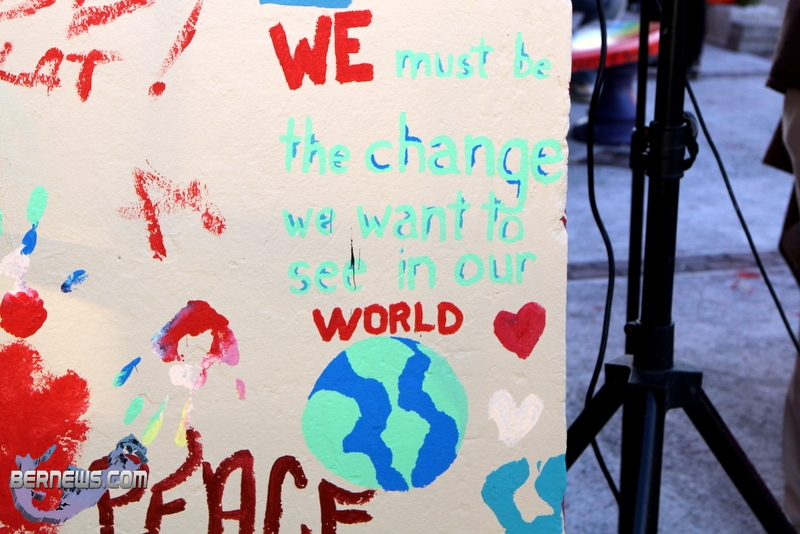 WE must be
the change
we want to
see in our
WORLD
PEACE
BERNEWS.COM